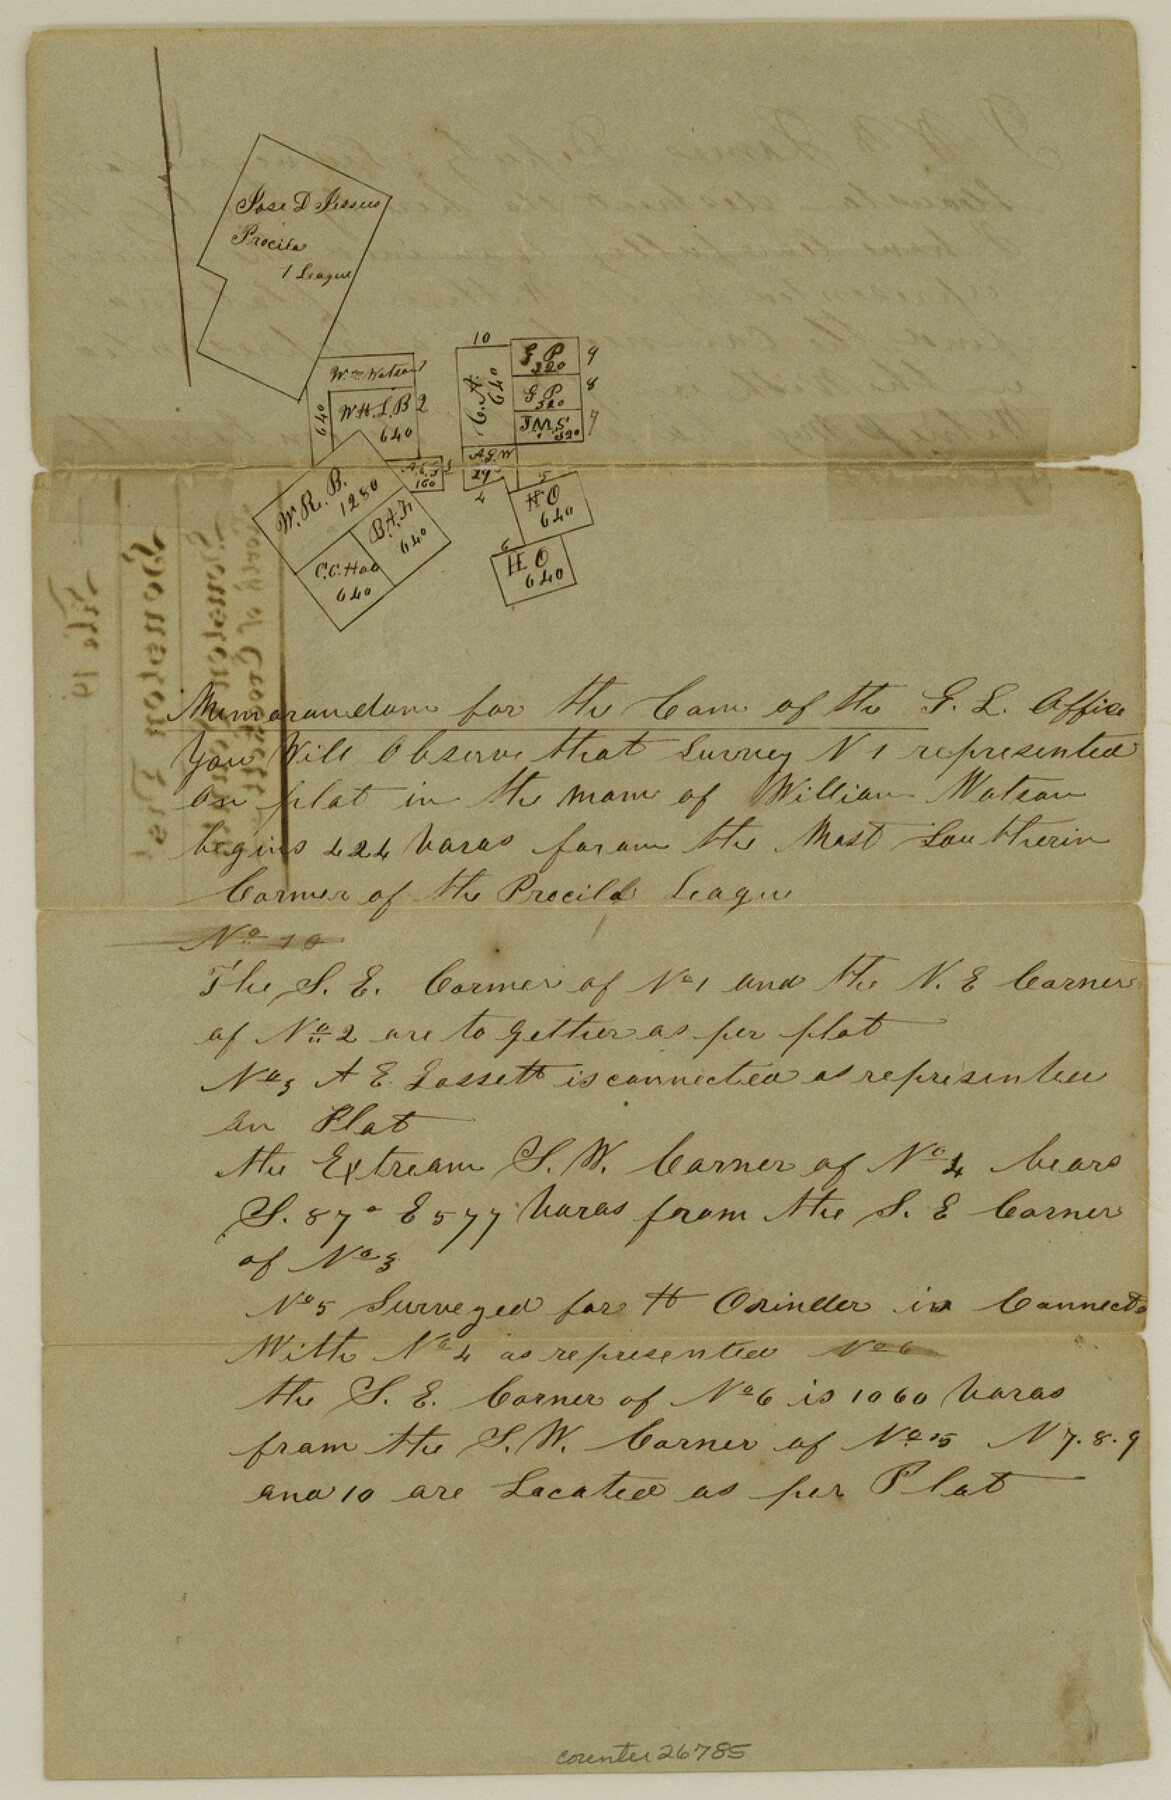 Jose D Jessus
Procila
1 League
Wm Watson 1
640
W.H.L.B 2
640
10
C.A.
640
G P 9
320
G P 8
320
J.M.S. 7
320
A.G.W
4
5
H O
640
6
H. O
640
3
160
W. R. B.
1280
640
C.C.
640
Memorandom for the Com of the G. L. Office
You Will Observe that Survey N 1 represented
on plat in the name of William Watson
begins 424 Varas foram the Most Southerin
Corner of the Procila League
No 10
The S. E. Corner of No 1 and the N. E Corner
of No 2 are to gether as per plat
No 3 A E Gossett is connected as represented
on Plat
the Extream S. W. Corner of No 4 bears
S. 87° E 577 Varas from the S. E Corner
of No 3
No 5 Surveyed for H Orinder is Connected
With No 4 as represented No 6
the S. E. Corner of No 6 is 1060 Varas
from the S. W. Corner of No 5 N 7. 8. 9
and 10 are Located as per Plat
counter 26785